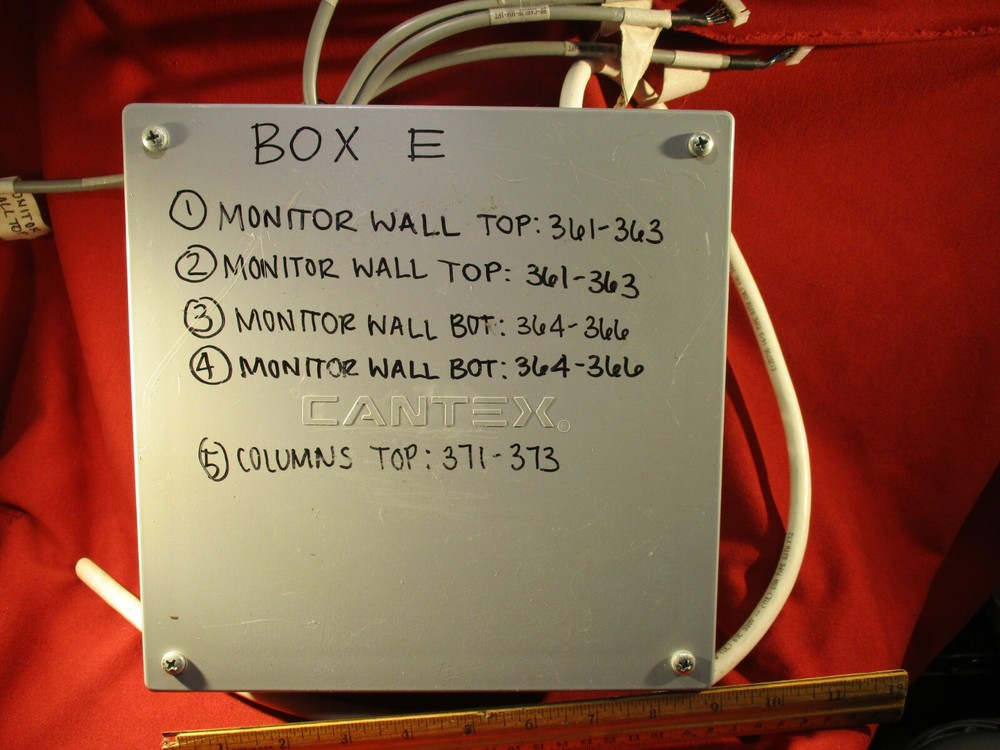 BOX E
① MONITOR WALL TOP: 361-363
② MONITOR WALL TOP: 361-363
③ MONITOR WALL BOT: 364-366
④ MONITOR WALL BOT: 364-366
CANTEX®
⑤ COLUMNS TOP: 371-373
2 3 4 5 6 7 8 9 10 11